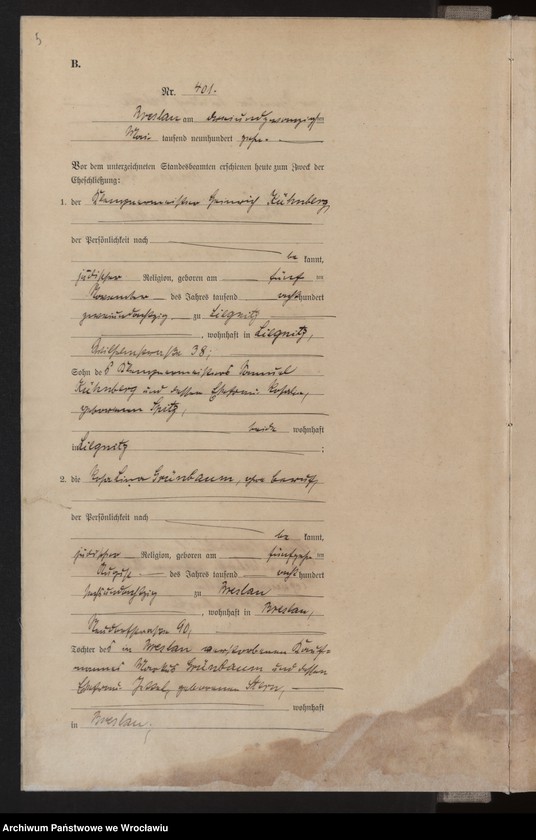 3
B.
Nr. 401.
Breslau am dreiundzwanzigsten
Mai tausend neunhundert zehn.
Vor dem unterzeichneten Standesbeamten erschienen heute zum Zweck der
Eheschließung:
1. der Klempnermeister Heinrich Kühnberg,
der Persönlichkeit nach
be kannt,
jüdischer Religion, geboren am fünften
November des Jahres tausend achthundert
zweiundachtzig zu Liegnitz
, wohnhaft in Liegnitz,
38;
Sohn des Klempnermeisters Samuel
Kühnberg und dessen Ehefrau Rosalie,
geborenen Spitz,
beide wohnhaft
in Liegnitz ;
2. die Rosa Lina Grünbaum, ohne Beruf,
der Persönlichkeit nach
be kannt,
jüdischer Religion, geboren am fünfzehnten
August des Jahres tausend achthundert
sechsundachtzig zu Breslau
, wohnhaft in Breslau,
Neudorfstraße 90,
Tochter des in Breslau verstorbenen Kauf-
mannes Markus Grünbaum und dessen
Ehefrau geborenen Stern,
, wohnhaft
in Breslau.
Archiwum Państwowe we Wrocławiu